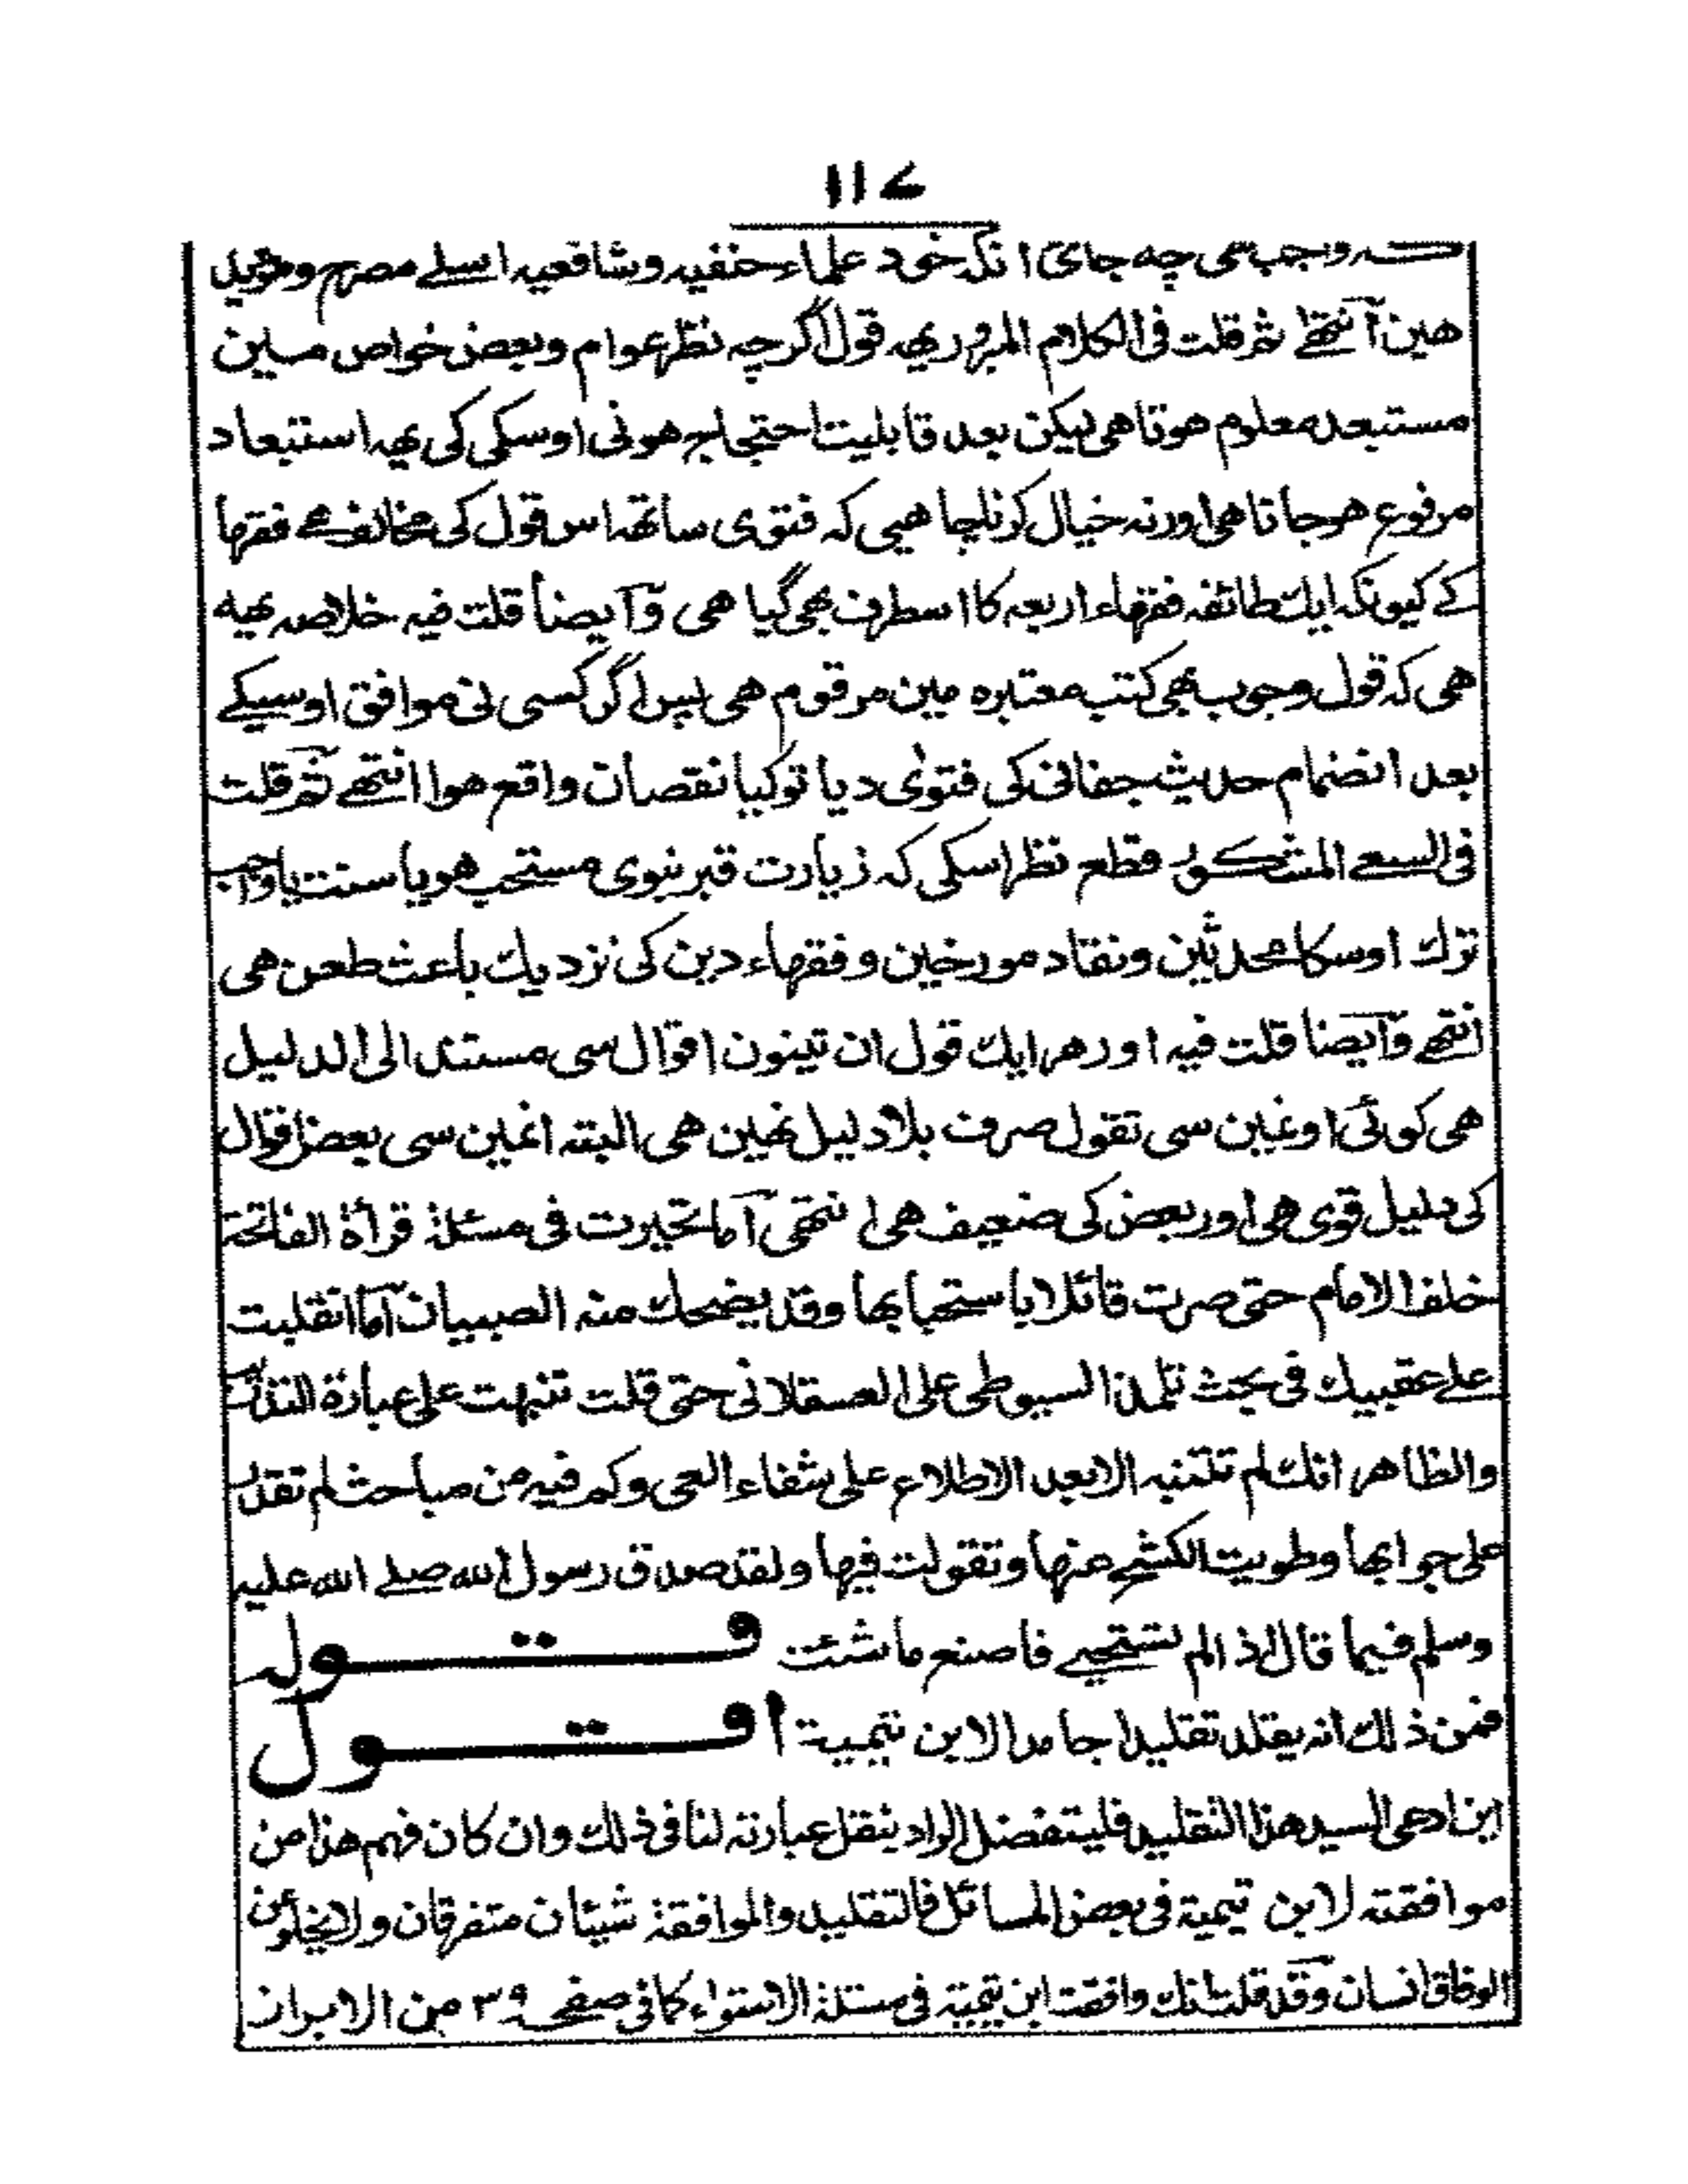 ١١٧
وجب سی چه جای انکه خود علماء حنفیه وشافعیه اسلے مصرح ومؤید
هین آنتهے ثم قلت فی الکلام المبرور یهه قول اگرچه نظر عوام وبعض خواص مین
مستبعد معلوم هوتا هی لیکن بعد قابلیت احتجاج هونی اوسکی کی یهه استبعاد
مرفوع هو جاتا هی اور نه خیال کرنا چاهیی که فتوی ساتهه اس قول کی مخالف هے فقها
کے کیونکه ایک طائفه فقهاء اربعه کا اسطرف بهی گیا هی وآیضا قلت فیه خلاصه یهه
هی که قول وجوب بهی کتب معتبره مین مرقوم هی پس اگر کسی نی موافق اوسیکے
بعد انضمام حدیث جفانی کی فتوی دیا تو کیا نقصان واقع هوا انتهے ثم قلت
فی السعے المشکور قطع نظر اسکی که زیارت قبر نبوی مستحب هو یا سنت یا واجب
ترک اوسکا محدثین ونقاد مورخین وفقهاء دین کی نزدیک باعث طعن هی
انتهے وآیضا قلت فیه اور هر ایک قول ان تینون اقوال سی مستند الی الدلیل
هی کوئی اونمین سی تقول صرف بلا دلیل نهین هی البته انمین سی بعض اقوال
کی دلیل قوی هی اور بعض کی ضعیف هی انتهی آما تحیرت فی مسئلة قرأة الفاتحة
خلف الامام حتی صرت قائلا باستحبابها وقد یضحک منه الصبیان آما انقلبت
علے عقبیک فی بحث تلمذ السیوطی علی العسقلانی حتی قلت تنبهت علی عبارة
والظاهر انک لم تتنبه الا بعد الاطلاع علی شفاء العی وکم فیه من مباحث لم تقدر
علی جوابها وطویت الکشح عنها وتقولت فیها ولقد صدق رسول الله صلے الله علیه
وسلم فیما قال اذا لم تستحیے فاصنع ما شئت قوله
فمن ذلک انه یقلد تقلیدا جامدا لابن تیمیة اقول
این ادعی السید هذا التقلید فلیتفضل الراد بنقل عبارته لنا فی ذلک وان کان فهم هذا من
موافقته لابن تیمیة فی بعض المسائل فالتقلید والموافقة شیئان متفرقان ولا یخلو عن
الوفاق انسان وقد قلت انک وافقت ابن تیمیة فی مسئلة الاستواء کما فی صفحه ٣٩ من الابراز